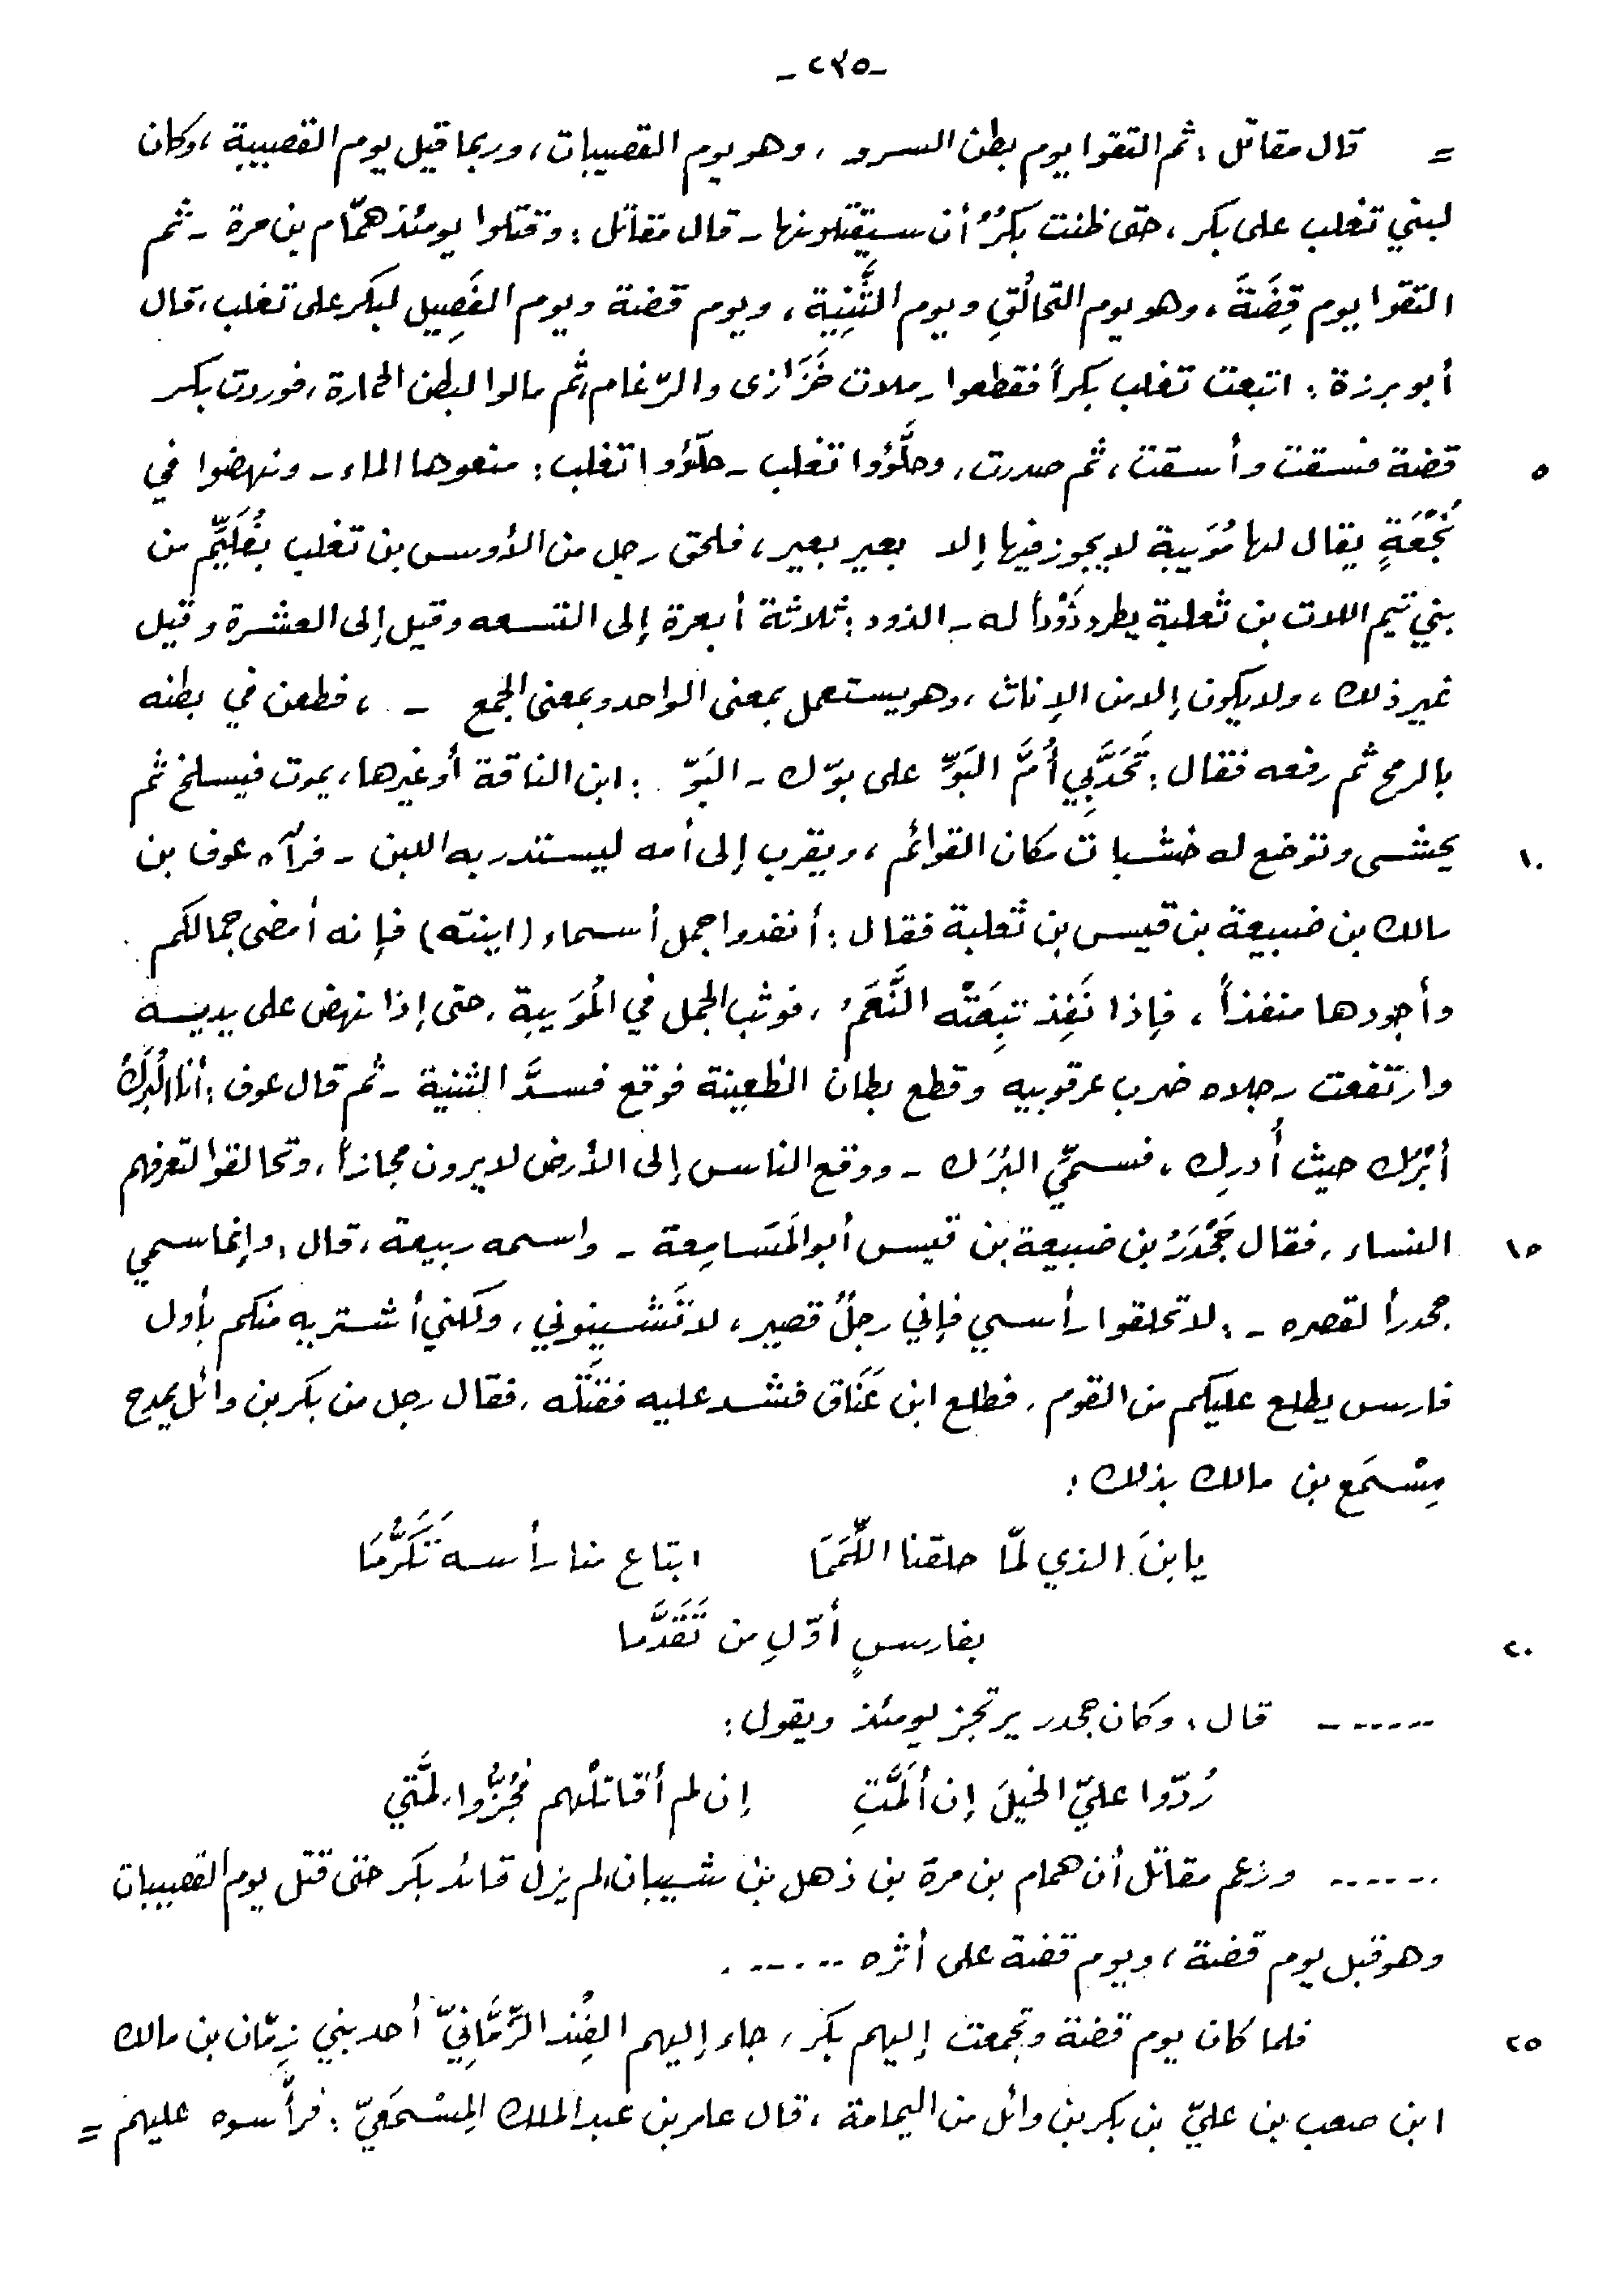 -٢٣٥-
= قال مقاتل: ثم التقوا يوم بطن السرو، وهو يوم القصيبات، وربما قيل يوم القصيبة، وكان
لبني تغلب على بكر، حتى ظنت بكرٌ أن سيقتلونها - قال مقاتل: وقتلوا يومئذ همّام بن مرة - ثم
التقوا يوم قِضَةَ، وهو يوم التحالُقِ ويوم الثَّنِيةِ، ويوم قضة ويوم الفَصِيل لبكر على تغلب، قال
أبو برزة: اتبعت تغلب بكراً فقطعوا رملات خَزَازى والرّغام، ثم مالوا لبطن الحمارة، فوردت بكر
٥ قضة فسقت وأسقت، ثم صدرت، وحلَّؤوا تغلب - حلّؤوا تغلب: منعوها الماء - ونهضوا في
نُجْعَةٍ يقال لها مُوَيبة لا يجوز فيها إلا بعير بعير، فلحق رجل من الأوس بن تغلب بغُلَيِّم من
بني تيم اللات بن ثعلبة يطرد ذَوْداً له - الذود: ثلاثة أبعرة إلى التسعه وقيل إلى العشرة وقيل
غير ذلك، ولا يكون إلا من الإناث، وهو يستعمل بمعنى الواحد وبمعنى الجمع - ، فطعن في بطنه
بالرمح ثم رفعه فقال: تَحَدَّبِي أُمَّ البَوِّ على بوّك - البَوّ: ابن الناقة أو غيرها، يموت فيسلخ ثم
١٠ يحشى وتوضع له خشبات مكان القوائم، ويقرب إلى أمه ليستدر به اللبن - فرآه عوف بن
مالك بن ضبيعة بن قيس بن ثعلبة فقال: أنفدوا جمل أسماء (ابنته) فإنه أمضى جمالكم
وأجودها منفذاً، فإذا نَفِذ تبِعَتْه النَّعَمُ، فوثب الجمل في المُوَيبة، حتى إذا نهض على يديه
وارتفعت رجلاه ضرب عرقوبيه وقطع بطان الظعينة فوقع فسدَّ الثنية - ثم قال عوف: أنا البُرَكُ
أبْرُك حيث أُدرِك، فسمِّي البُرَك - ووقع الناس إلى الأرض لا يرون مجازاً، وتحالقوا لتعرفهم
١٥ النساء، فقال جَحْدَرُ بن ضبيعة بن قيس أبو المَسَامِعة - واسمه ربيعة، قال: وإنما سمي
جحدراً لقصره - : لا تحلقوا رأسي فإني رجلٌ قصير، لا تَشينوني، ولكني أشتريه منكم بأول
فارس يطلع عليكم من القوم، فطلع ابن عَنَاق فشد عليه فقَتَلَه، فقال رجل من بكر بن وائل يمدح
مِسْمَع بن مالك بذلك:
يا بنَ الذي لمّا حلقنا اللِّمَمَا ابتاع منا رأسه تَكَرُّمَا
٢٠ بفارسٍ أوّلِ من تَقَدَّما
....... قال: وكان جحدر يرتجز يومئذ ويقول:
رُدّوا عليّ الخيلَ إن أَلَمَّتِ إن لم أقاتلْهم فجُزُّوا لِمَّتي
....... وزعم مقاتل أن همام بن مرة بن ذهل بن شيبان، لم يزل قائد بكر حتى قتل يوم القصيبات
وهو قبل يوم قضة، ويوم قضة على أثره .......
٢٥ فلما كان يوم قضة وتجمعت إليهم بكر، جاء إليهم الفِند الزِّمَّانِيّ أحد بني زِمّان بن مالك
ابن صعب بن عليّ بن بكر بن وائل من اليمامة، قال عامر بن عبد الملك المِسْمَعيّ: فرأَّسوه عليهم =